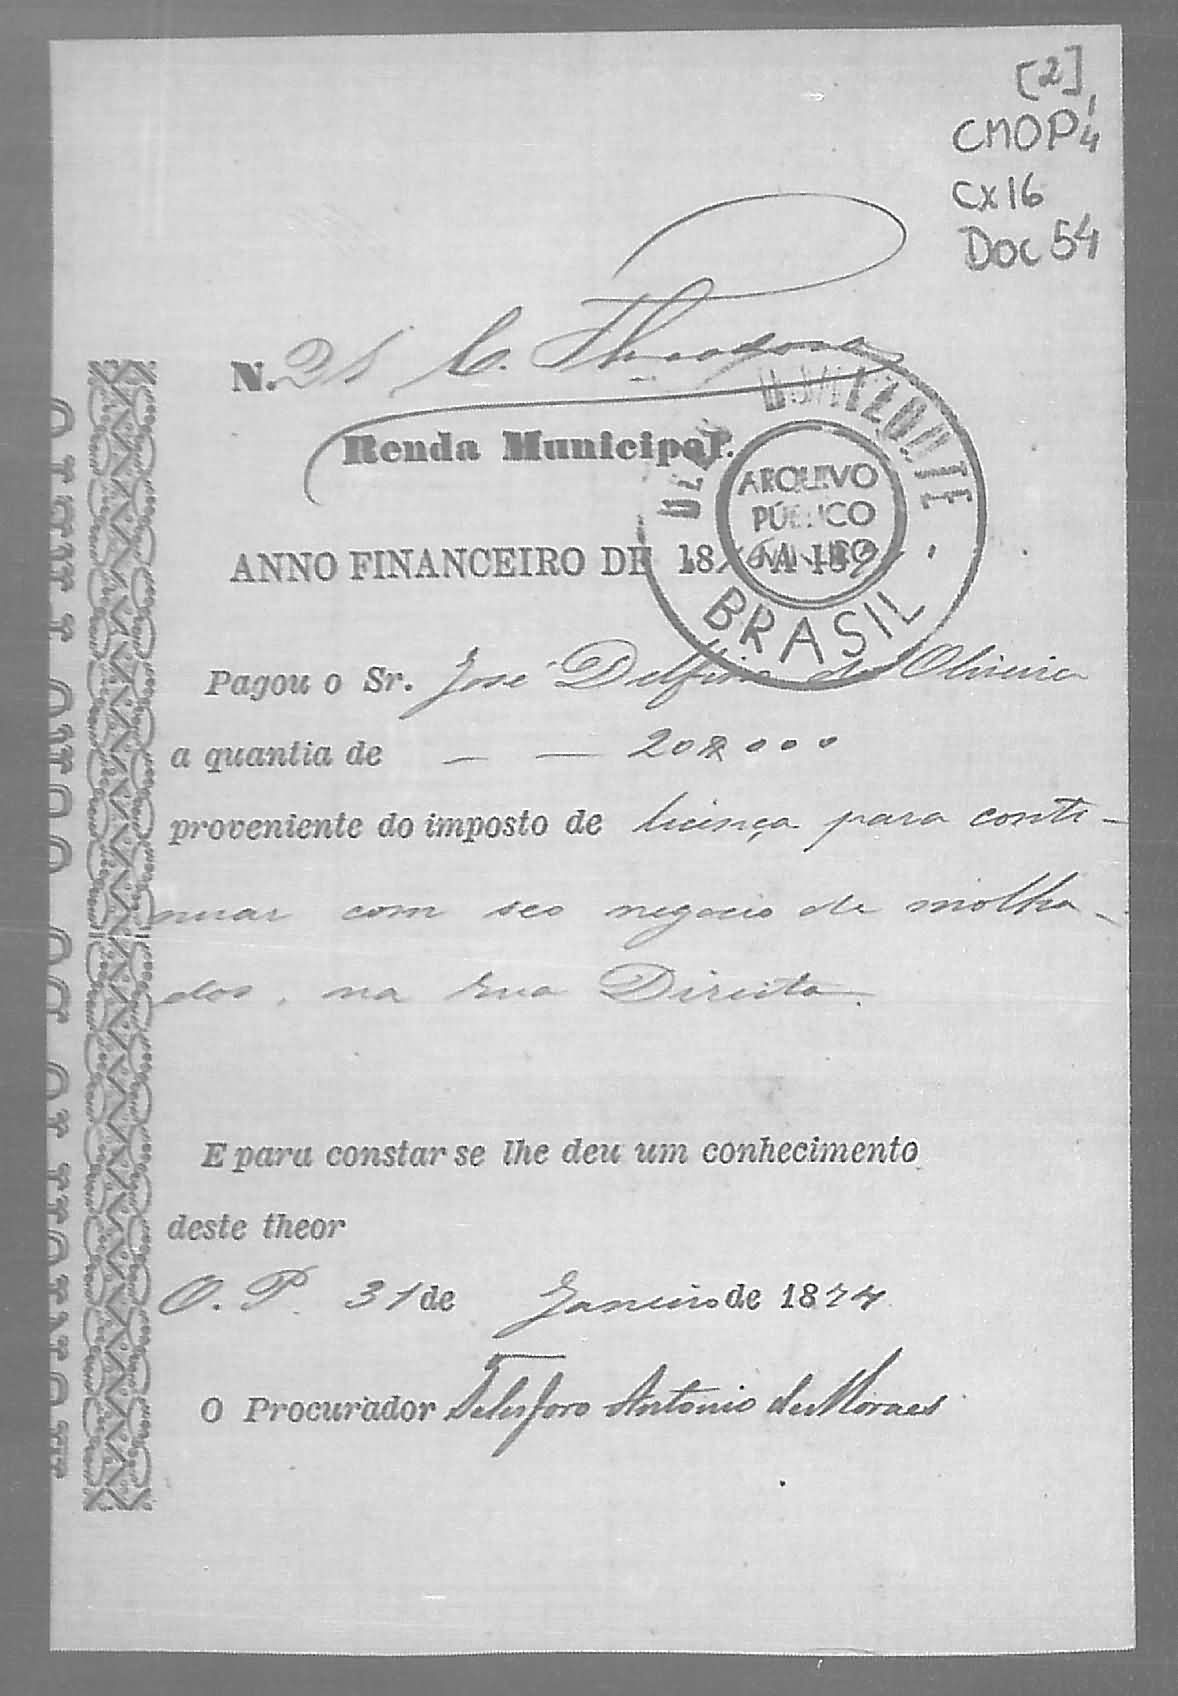 [2]
CMOP 1/4
CX16
Doc 54
N. 21 C. Theodoro
Renda Municipal.
ANNO FINANCEIRO DE 18 A 18
HORIZONTE
ARQUIVO
PÚBLICO
BRASIL
Pagou o Sr. José Delfino de Oliveira
a quantia de — — 20$000
proveniente do imposto de licença para conti-
nuar com seo negocio de molha-
dos, na rua Direita.
E para constar se lhe deu um conhecimento
deste theor
O. P. 31 de Janeiro de 1874
O Procurador Telesforo Antonio de Moraes